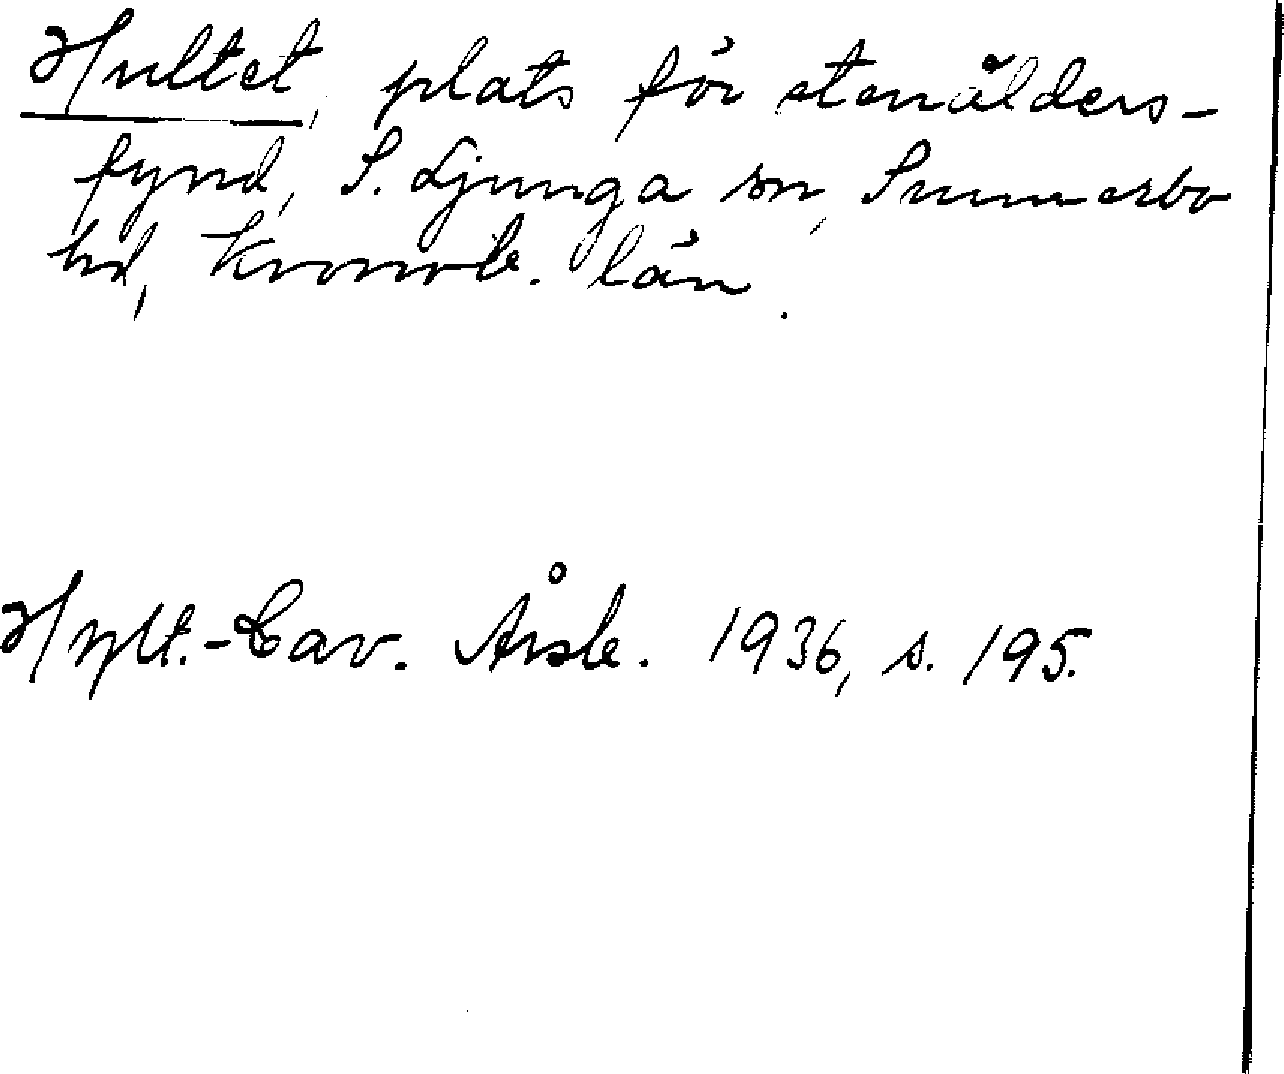 Hultet, plats för stenålders-
fynd, S. Ljunga sn, Sunnerbo
hd, Kronob. län.
Hylt.-Cav. Årsb. 1936, s. 195.